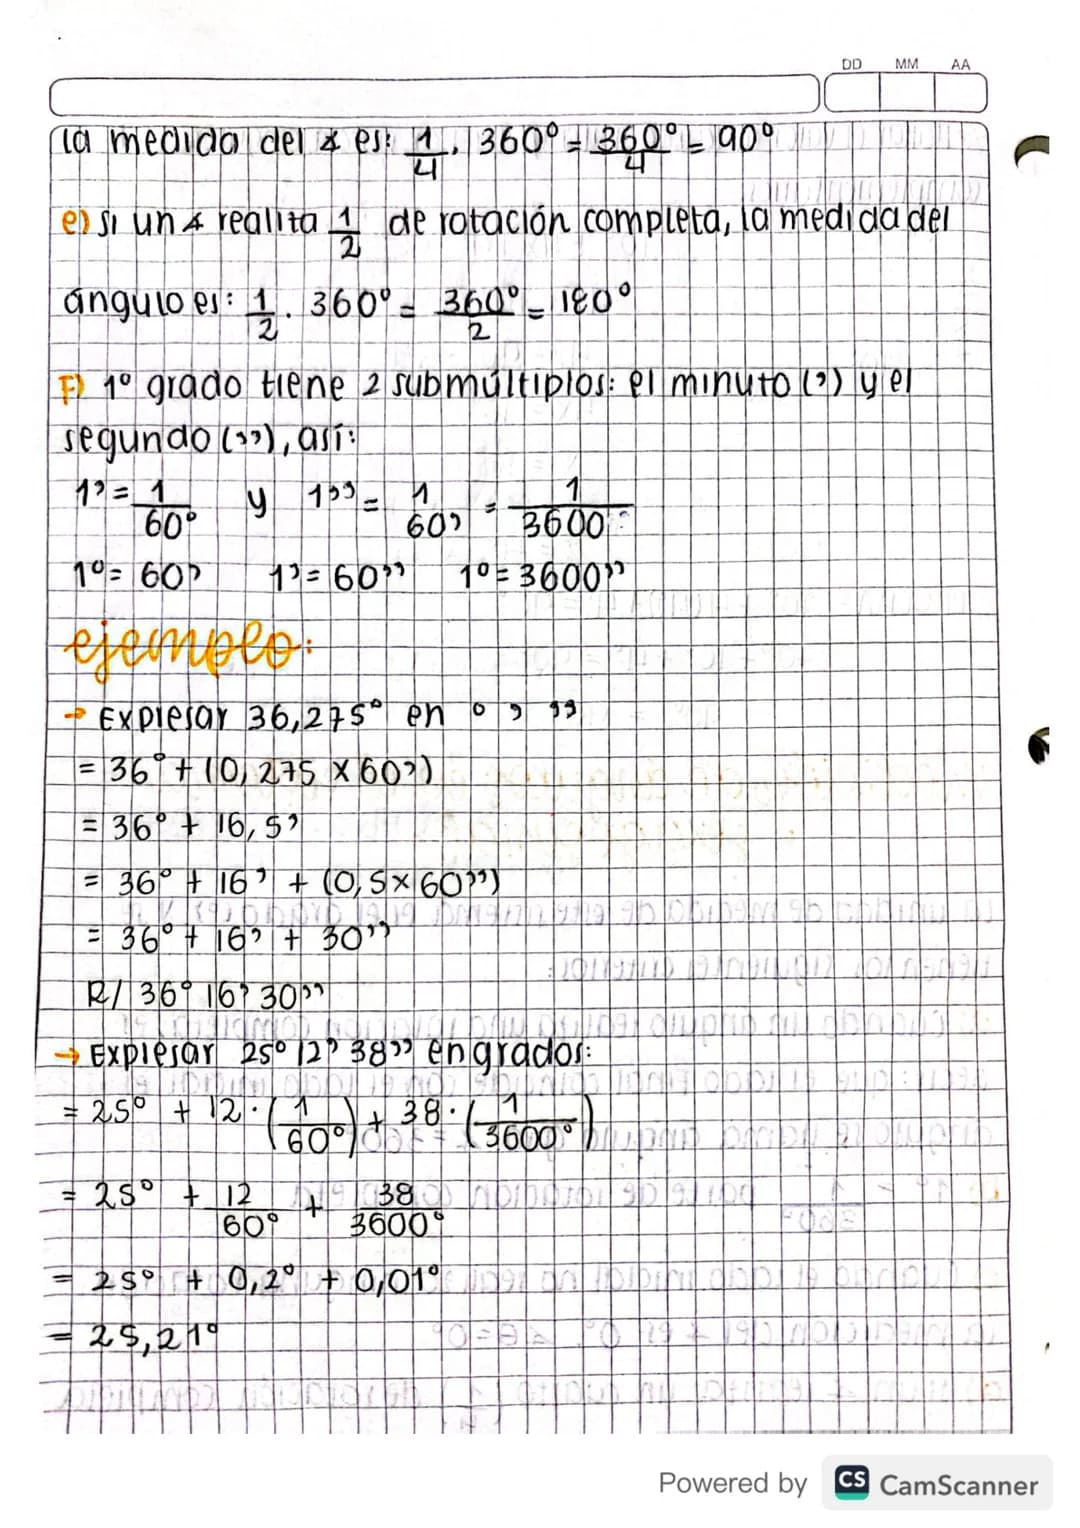 DD MM AA
la medida del ∡ es: 1/4 . 360° = 360°/4 = 90°
e) si un ∡ realita 1/2 de rotación completa, la medida del
ángulo es: 1/2 . 360° = 360°/2 = 180°
F) 1° grado tiene 2 submúltiplos: el minuto (') y el
segundo (''), así:
1' = 1/60° y 1'' = 1/60' = 1/3600°
1° = 60' 1' = 60'' 1° = 3600''
ejemplo:
→ Expresar 36,275° en ° ' ''
= 36° + (0,275 x 60')
= 36° + 16,5'
= 36° + 16' + (0,5 x 60'')
= 36° + 16' + 30''
R/ 36° 16' 30''
→ Expresar 25° 12' 38'' en grados:
= 25° + 12 · (1/60°) + 38 · (1/3600°)
= 25° + 12/60° + 38/3600°
= 25° + 0,2° + 0,01°
= 25,21°
Powered by CS CamScanner